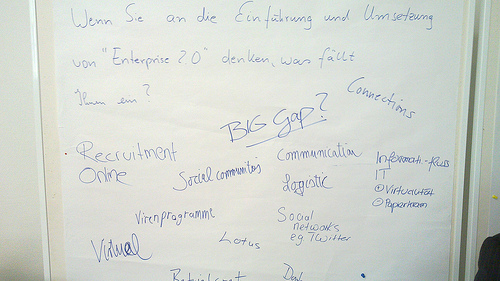 Wenn Sie an die Einführung und Umsetzung
von "Enterprise 2.0" denken, was fällt
Ihnen ein?
Connections
BIG Gap?
Recruitment
Online
Social communities
Communication
Logistic
Informati-fluss
IT
Virtualität
Virenprogramme
Social
networks
eg Twitter
Virtual
Lotus